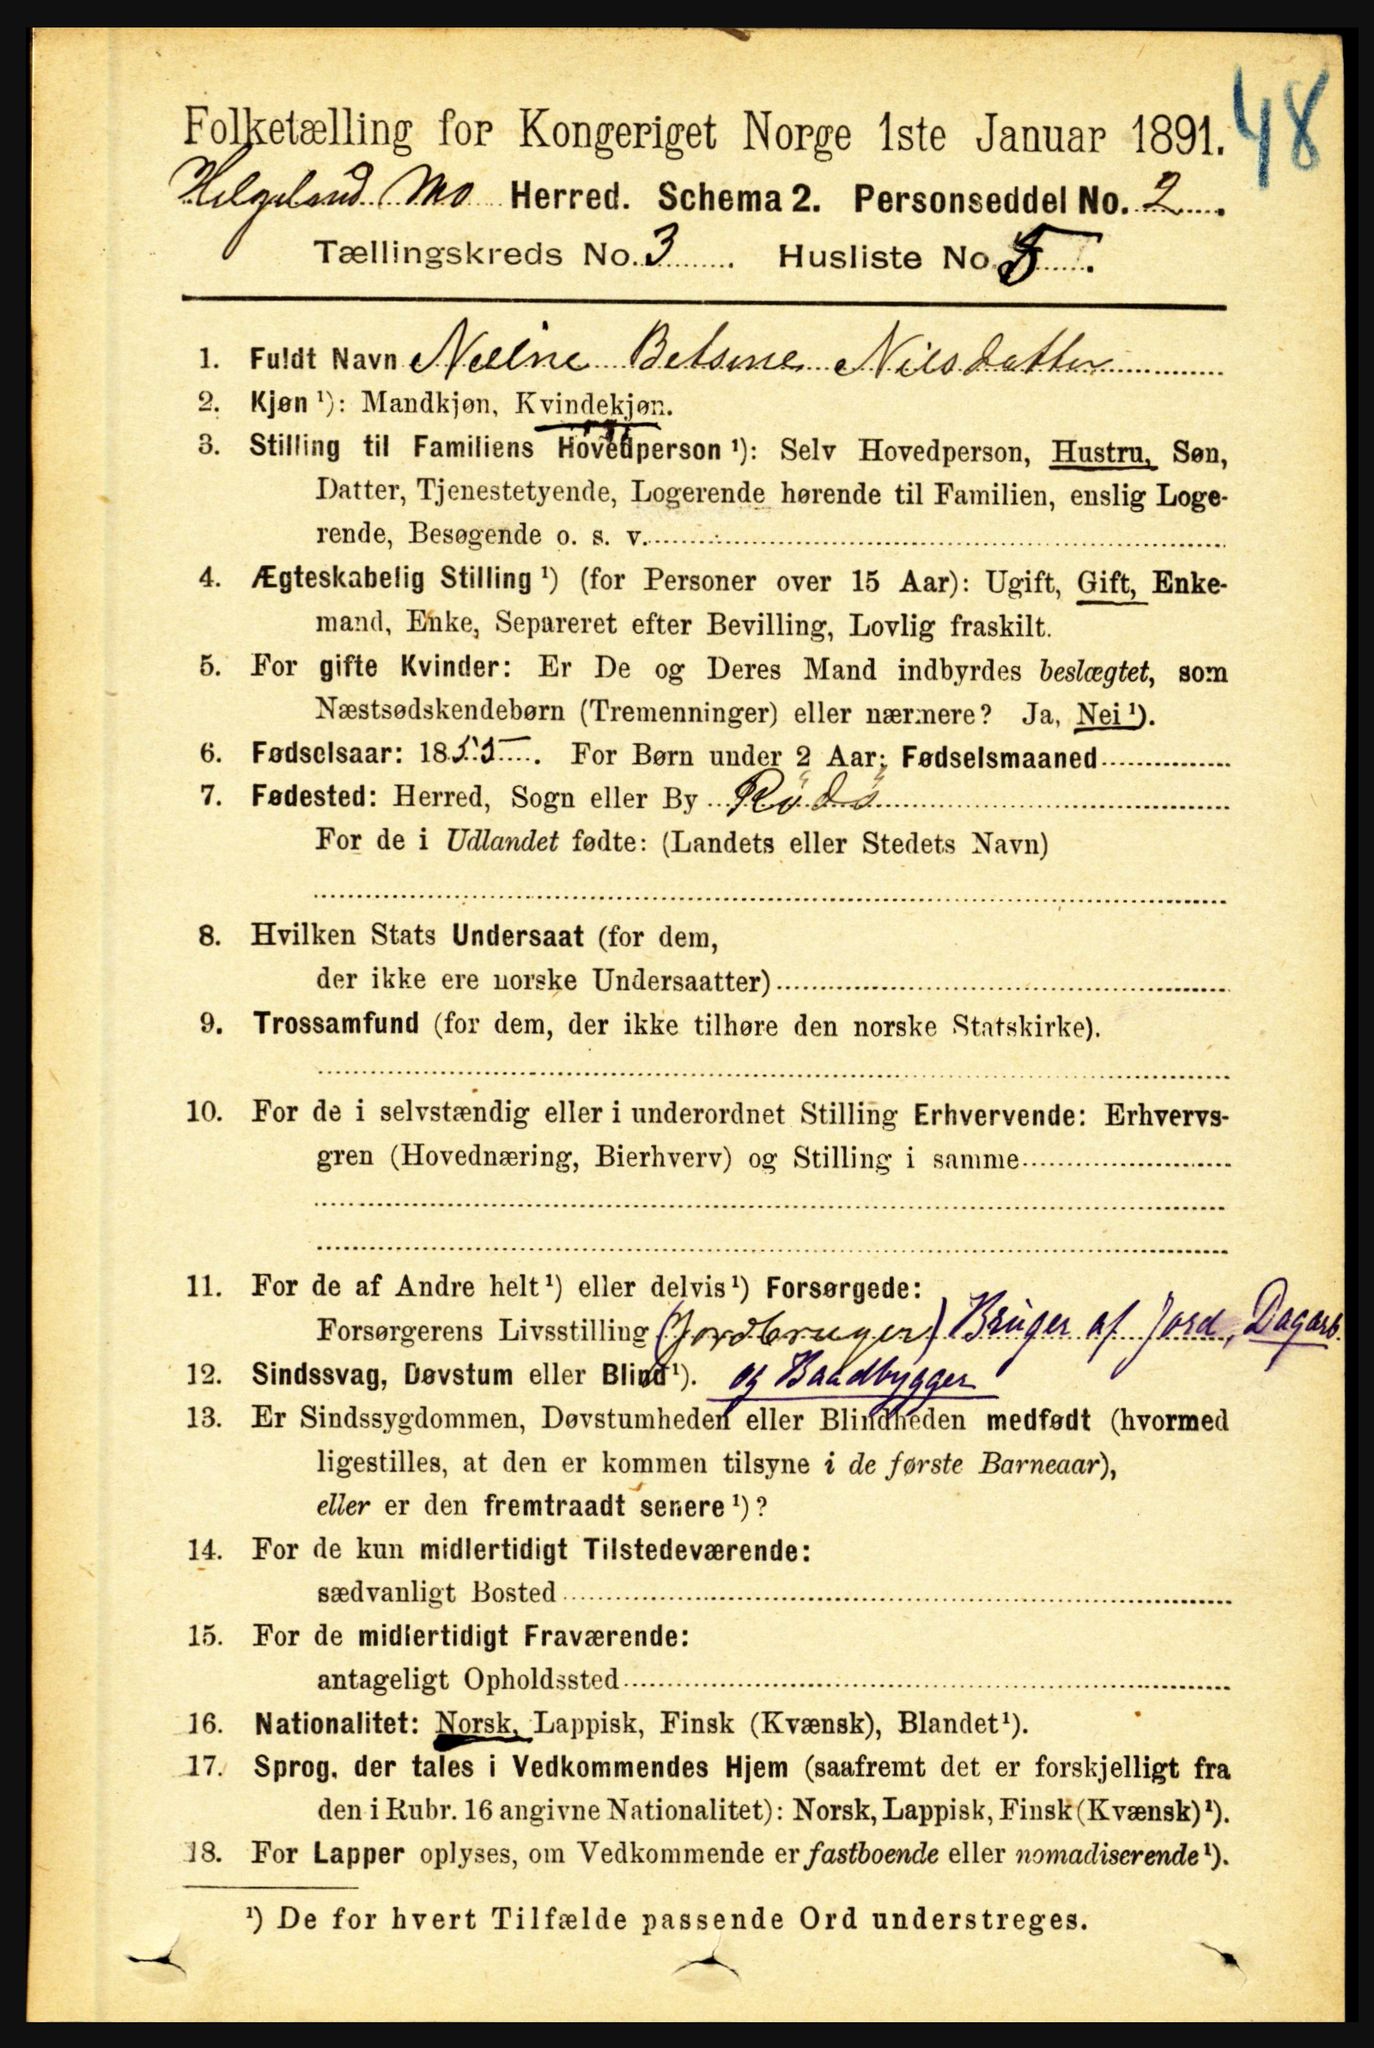 48
Folketælling for Kongeriget Norge 1ste Januar 1891.
Helgeland Mo Herred. Schema 2. Personseddel No. 2.
Tællingskreds No. 3. Husliste No. 5.
1. Fuldt Navn Betsine Nilsdatter
2. Kjøn ¹): Mandkjøn, Kvindekjøn.
3. Stilling til Familiens Hovedperson ¹): Selv Hovedperson, Hustru, Søn,
Datter, Tjenestetyende, Logerende hørende til Familien, enslig Loge-
rende, Besøgende o. s. v.
4. Ægteskabelig Stilling ¹) (for Personer over 15 Aar): Ugift, Gift, Enke-
mand, Enke, Separeret efter Bevilling, Lovlig fraskilt.
5. For gifte Kvinder: Er De og Deres Mand indbyrdes beslægtet, som
Næstsødskendebørn (Tremenninger) eller nærmere? Ja, Nei ¹).
6. Fødselsaar: 1855. For Børn under 2 Aar: Fødselsmaaned
7. Fødested: Herred, Sogn eller By Rödö
For de i Udlandet fødte: (Landets eller Stedets Navn)
8. Hvilken Stats Undersaat (for dem,
der ikke ere norske Undersaatter)
9. Trossamfund (for dem, der ikke tilhøre den norske Statskirke).
10. For de i selvstændig eller i underordnet Stilling Erhvervende: Erhvervs-
gren (Hovednæring, Bierhverv) og Stilling i samme
11. For de af Andre helt ¹) eller delvis ¹) Forsørgede:
Forsørgerens Livsstilling (Jordbruger) Bruger af Jord, Dagarb.
12. Sindssvag, Døvstum eller Blind ¹). og Baadbygger
13. Er Sindssygdommen, Døvstumheden eller Blindheden medfødt (hvormed
ligestilles, at den er kommen tilsyne i de første Barneaar),
eller er den fremtraadt senere ¹)?
14. For de kun midlertidigt Tilstedeværende:
sædvanligt Bosted
15. For de midlertidigt Fraværende:
antageligt Opholdssted
16. Nationalitet: Norsk, Lappisk, Finsk (Kvænsk), Blandet ¹).
17. Sprog, der tales i Vedkommendes Hjem (saafremt det er forskjelligt fra
den i Rubr. 16 angivne Nationalitet): Norsk, Lappisk, Finsk (Kvænsk) ¹).
18. For Lapper oplyses, om Vedkommende er fastboende eller nomadiserende ¹).
¹) De for hvert Tilfælde passende Ord understreges.